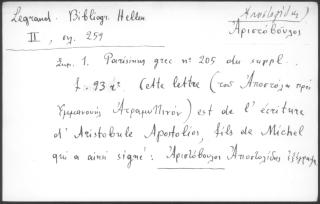 Legrand. Bibliogr. Hellén
(Ἀποστολίδης)
Ἀριστόβουλος
II, σελ. 259
Σημ. 1. Parisinus grec nº 205 du suppl.
f. 93 rº Cette lettre (τοῦ Ἀποστόλη πρὸς
Ἐμμανουὴλ Ἀτραμυττινόν) est de l'écriture
d'Aristobule Apostolios, fils de Michel
qui a ainsi signé: Ἀριστόβουλος Ἀποστολίδης ἐξέγραψα